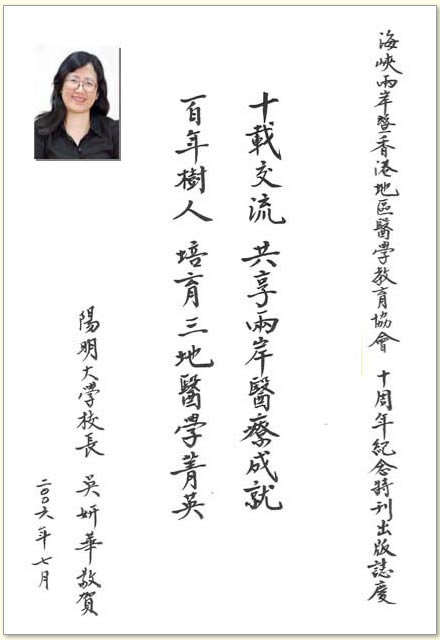 海峽兩岸暨香港地區醫學教育協會 十周年紀念特刊出版誌慶
十載交流 共享兩岸醫療成就
百年樹人 培育三地醫學菁英
陽明大學校長 吳妍華敬賀
二００六年七月